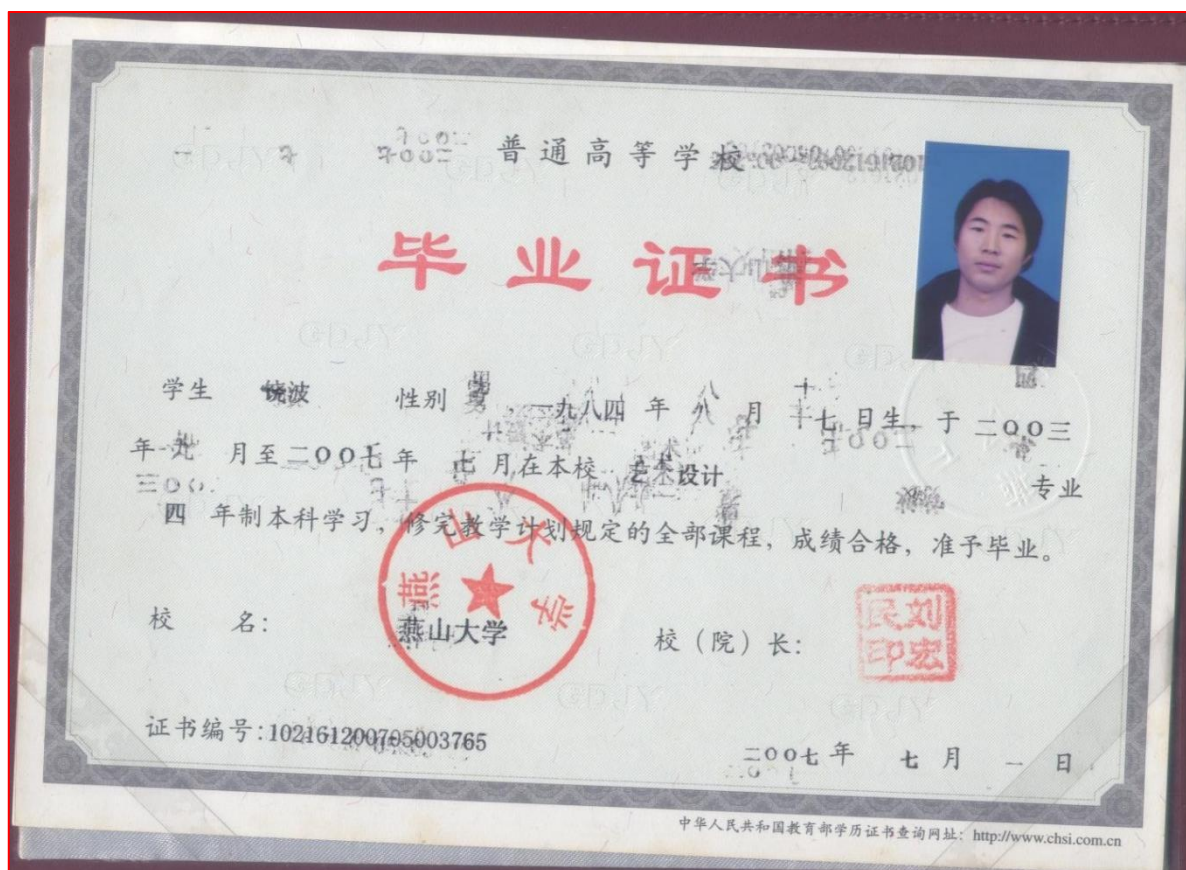 普通高等学校
毕业证书
学生 饶波 性别 男，一九八四年 八 月 十七日生，于二〇〇三
年 九 月至二〇〇七年 七 月在本校 艺术设计 专业
四 年制本科学习，修完教学计划规定的全部课程，成绩合格，准予毕业。
燕山大学
校 名： 燕山大学 校（院）长： 刘宏民印
证书编号：102161200705003765
二〇〇七年 七 月 一 日
中华人民共和国教育部学历证书查询网址：http://www.chsi.com.cn